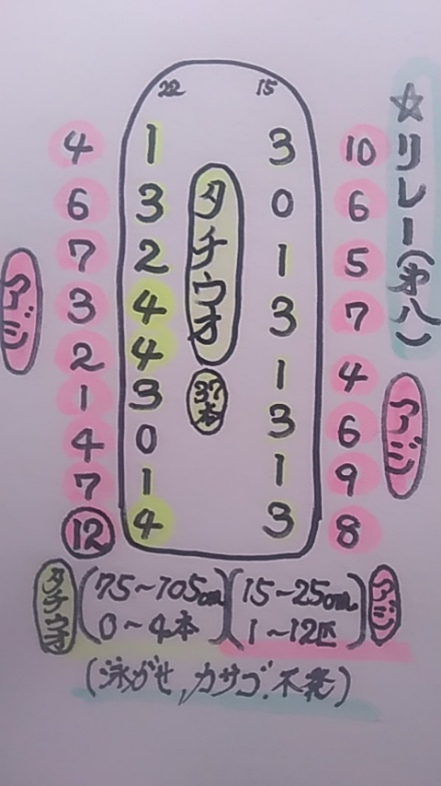 ☆リレー(第八)
22 15
4 1 3 10
6 3 0 6
7 2 1 5
3 4 3 7
2 4 1 4
1 3 3 6
4 0 1 9
7 1 3 8
12 4
アジ
タチウオ
37本
アジ
タチウオ (75~105cm)(15~25cm) アジ
0~4本 1~12匹
(泳がせ,カサゴ.不発)